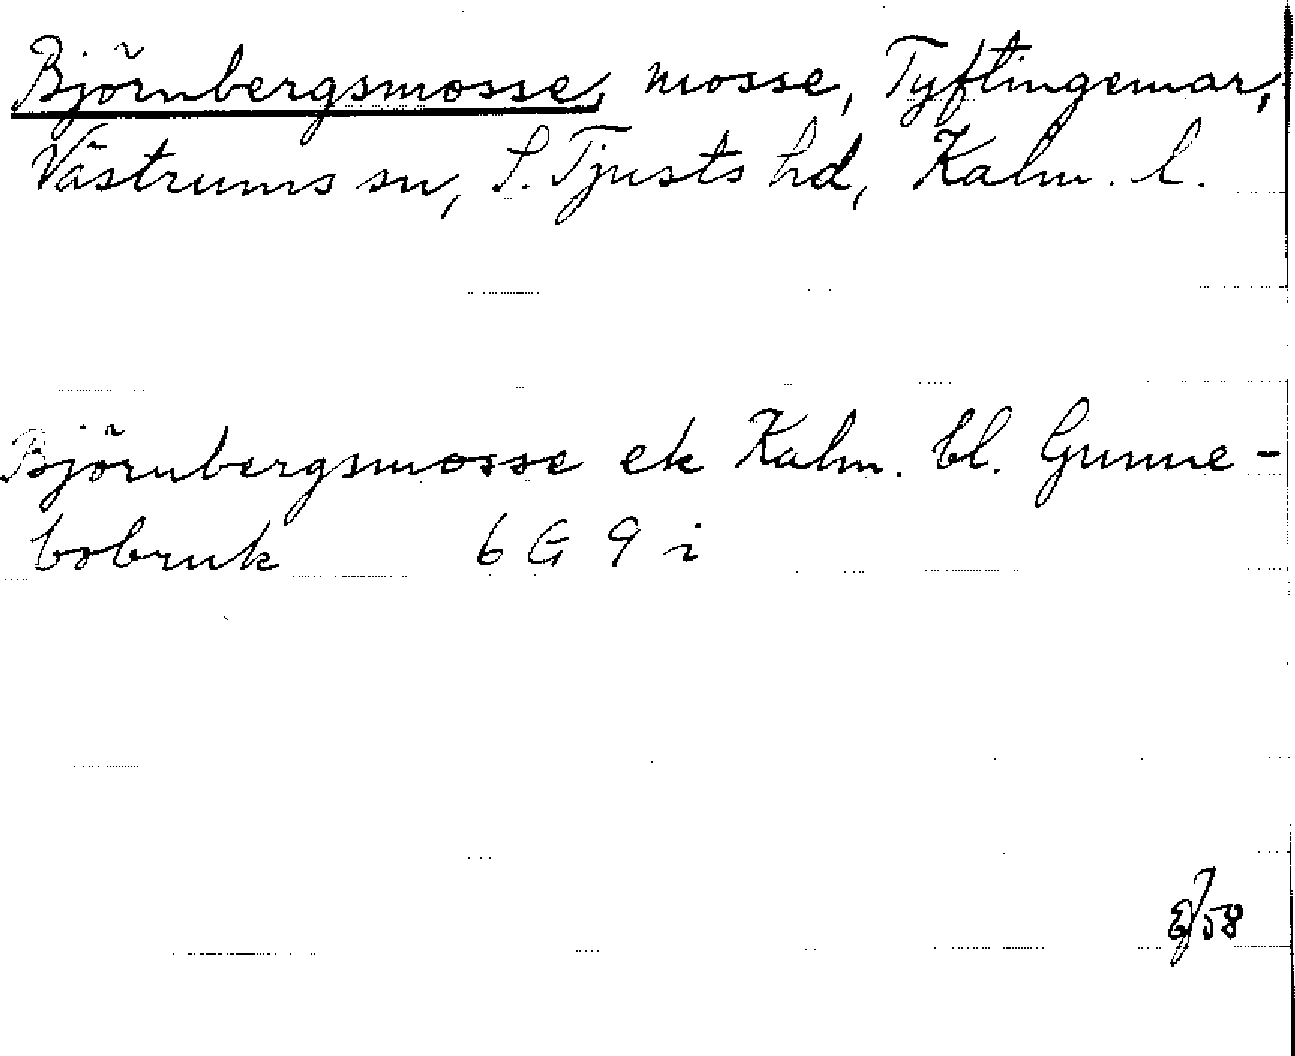 Björnbergsmosse, mosse, Tyftingemar,
Västrums sn, S. Tjusts hd, Kalm. l.
Björnbergsmosse ek Kalm. bl. Gunne-
bobruk 6 G 9 i